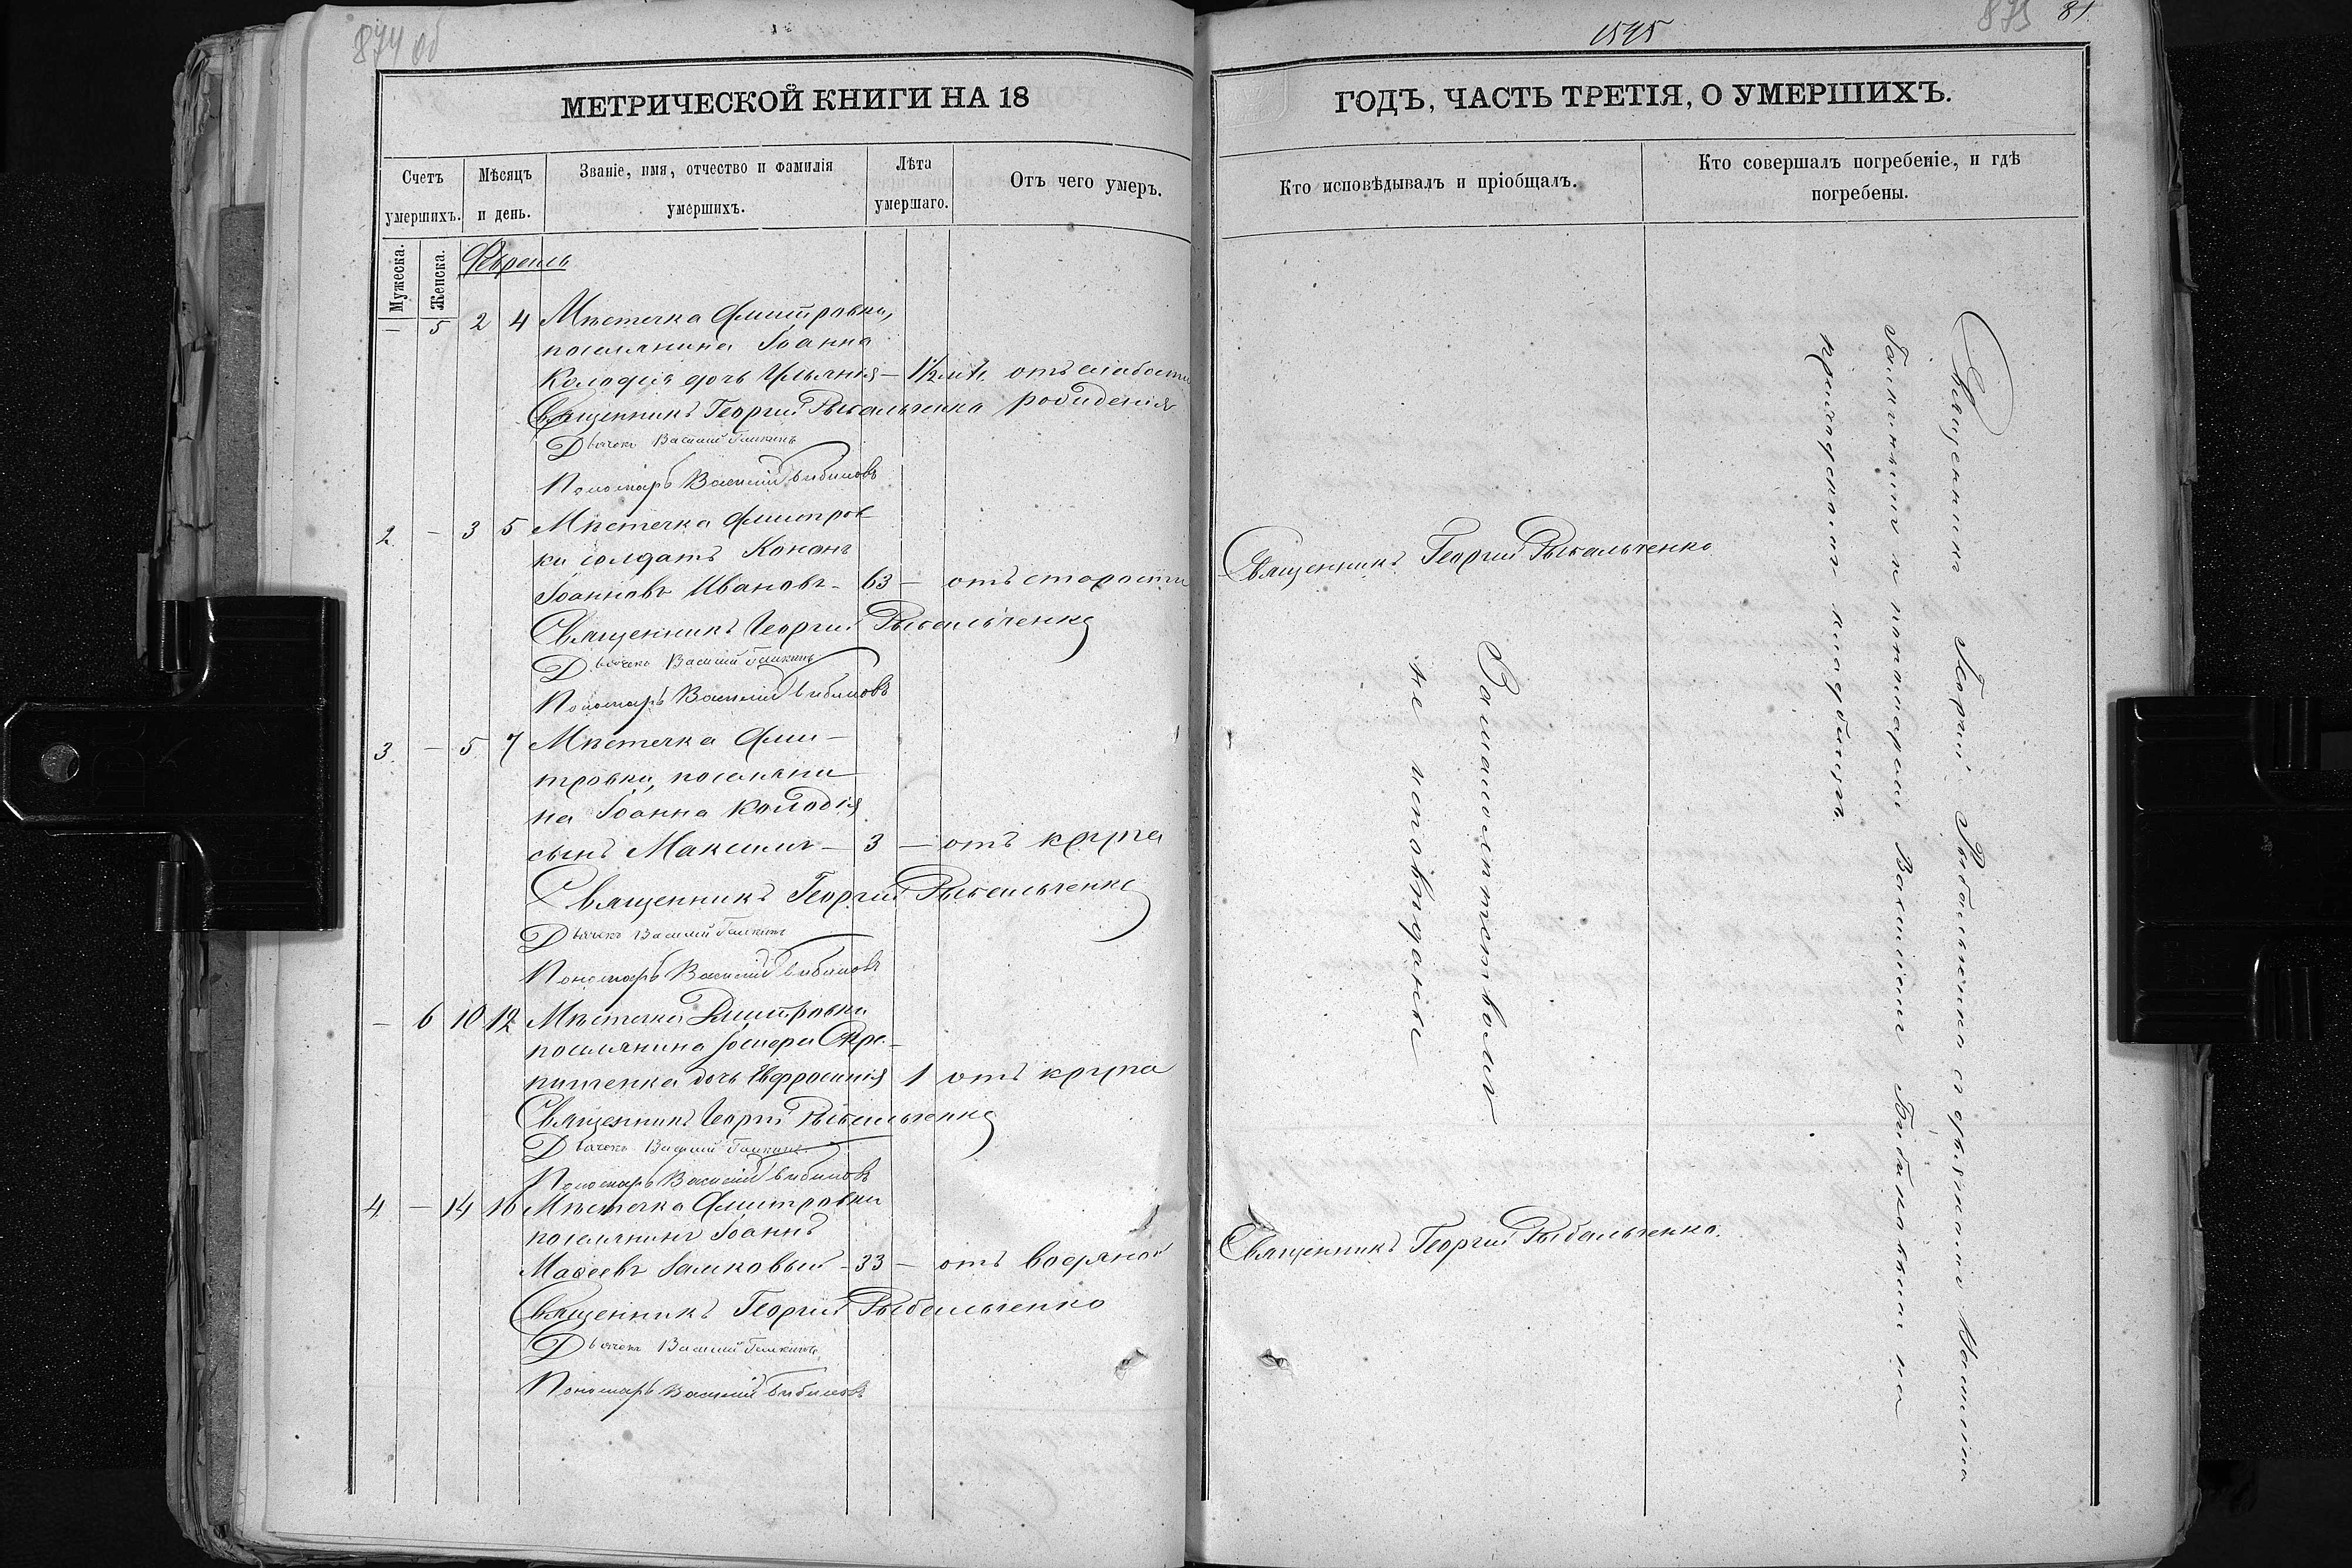 874 об
МЕТРИЧЕСКОЙ КНИГИ НА 18
Счетъ умершихъ.
Мѣсяцъ и день.
Званіе, имя, отчество и фамилія умершихъ.
Лѣта умершаго.
Отъ чего умеръ.
Мужеска.
Женска.
Февраль
— 5 2 4 Мѣстечка Дмитровки,
поселянина Іоанна
Колодія дочь Ульянія — 1/2 отъ слабости
Священникъ Георгій Рыбальченко рожденія
Дьячекъ Василий Галкинъ
Пономарь Василій Бибиковъ
2. — 3 5 Мѣстечка Дмитров-
ки солдатъ Кононъ
Іоанновъ Ивановъ — 63 — отъ старости
Священникъ Георгій Рыбальченко
Дьячекъ Василий Галкинъ
Пономарь Василій Бибиковъ
3. — 5 7 Мѣстечка Дми-
тровки, поселяни
на Іоанна Колодія
сынъ Максимъ — 3 — отъ крупа
Священникъ Георгій Рыбальченко
Дьячекъ Василий Галкинъ
Пономарь Василій Бибиковъ
— 6 10 12 Мѣстечка Дмитровки
поселянина Іосифа
дочь Евфросинія 1 отъ крупа
Священникъ Георгій Рыбальченко
Дьячекъ Василий Галкинъ
Пономарь Василій Бибиковъ
4. — 14 16 Мѣстечка Дмитровки
поселянинъ Іоаннъ
Замковый — 33 — отъ водяной
Священникъ Георгій Рыбальченко
Дьячекъ Василий Галкинъ
Пономарь Василій Бибиковъ
1545
875 81
ГОДЪ, ЧАСТЬ ТРЕТІЯ, О УМЕРШИХЪ.
Кто исповѣдывалъ и пріобщалъ.
Кто совершалъ погребеніе, и гдѣ
погребены.
Священникъ Георгій Рыбальченко
За малолѣтствомъ
не исповѣданы
Священникъ Георгій Рыбальченко.
Священникъ Георгій Рыбальченко съ дьячкомъ Василіемъ
Галкинымъ и пономаремъ Василіемъ Бибиковымъ на
приходскомъ кладбищѣ.